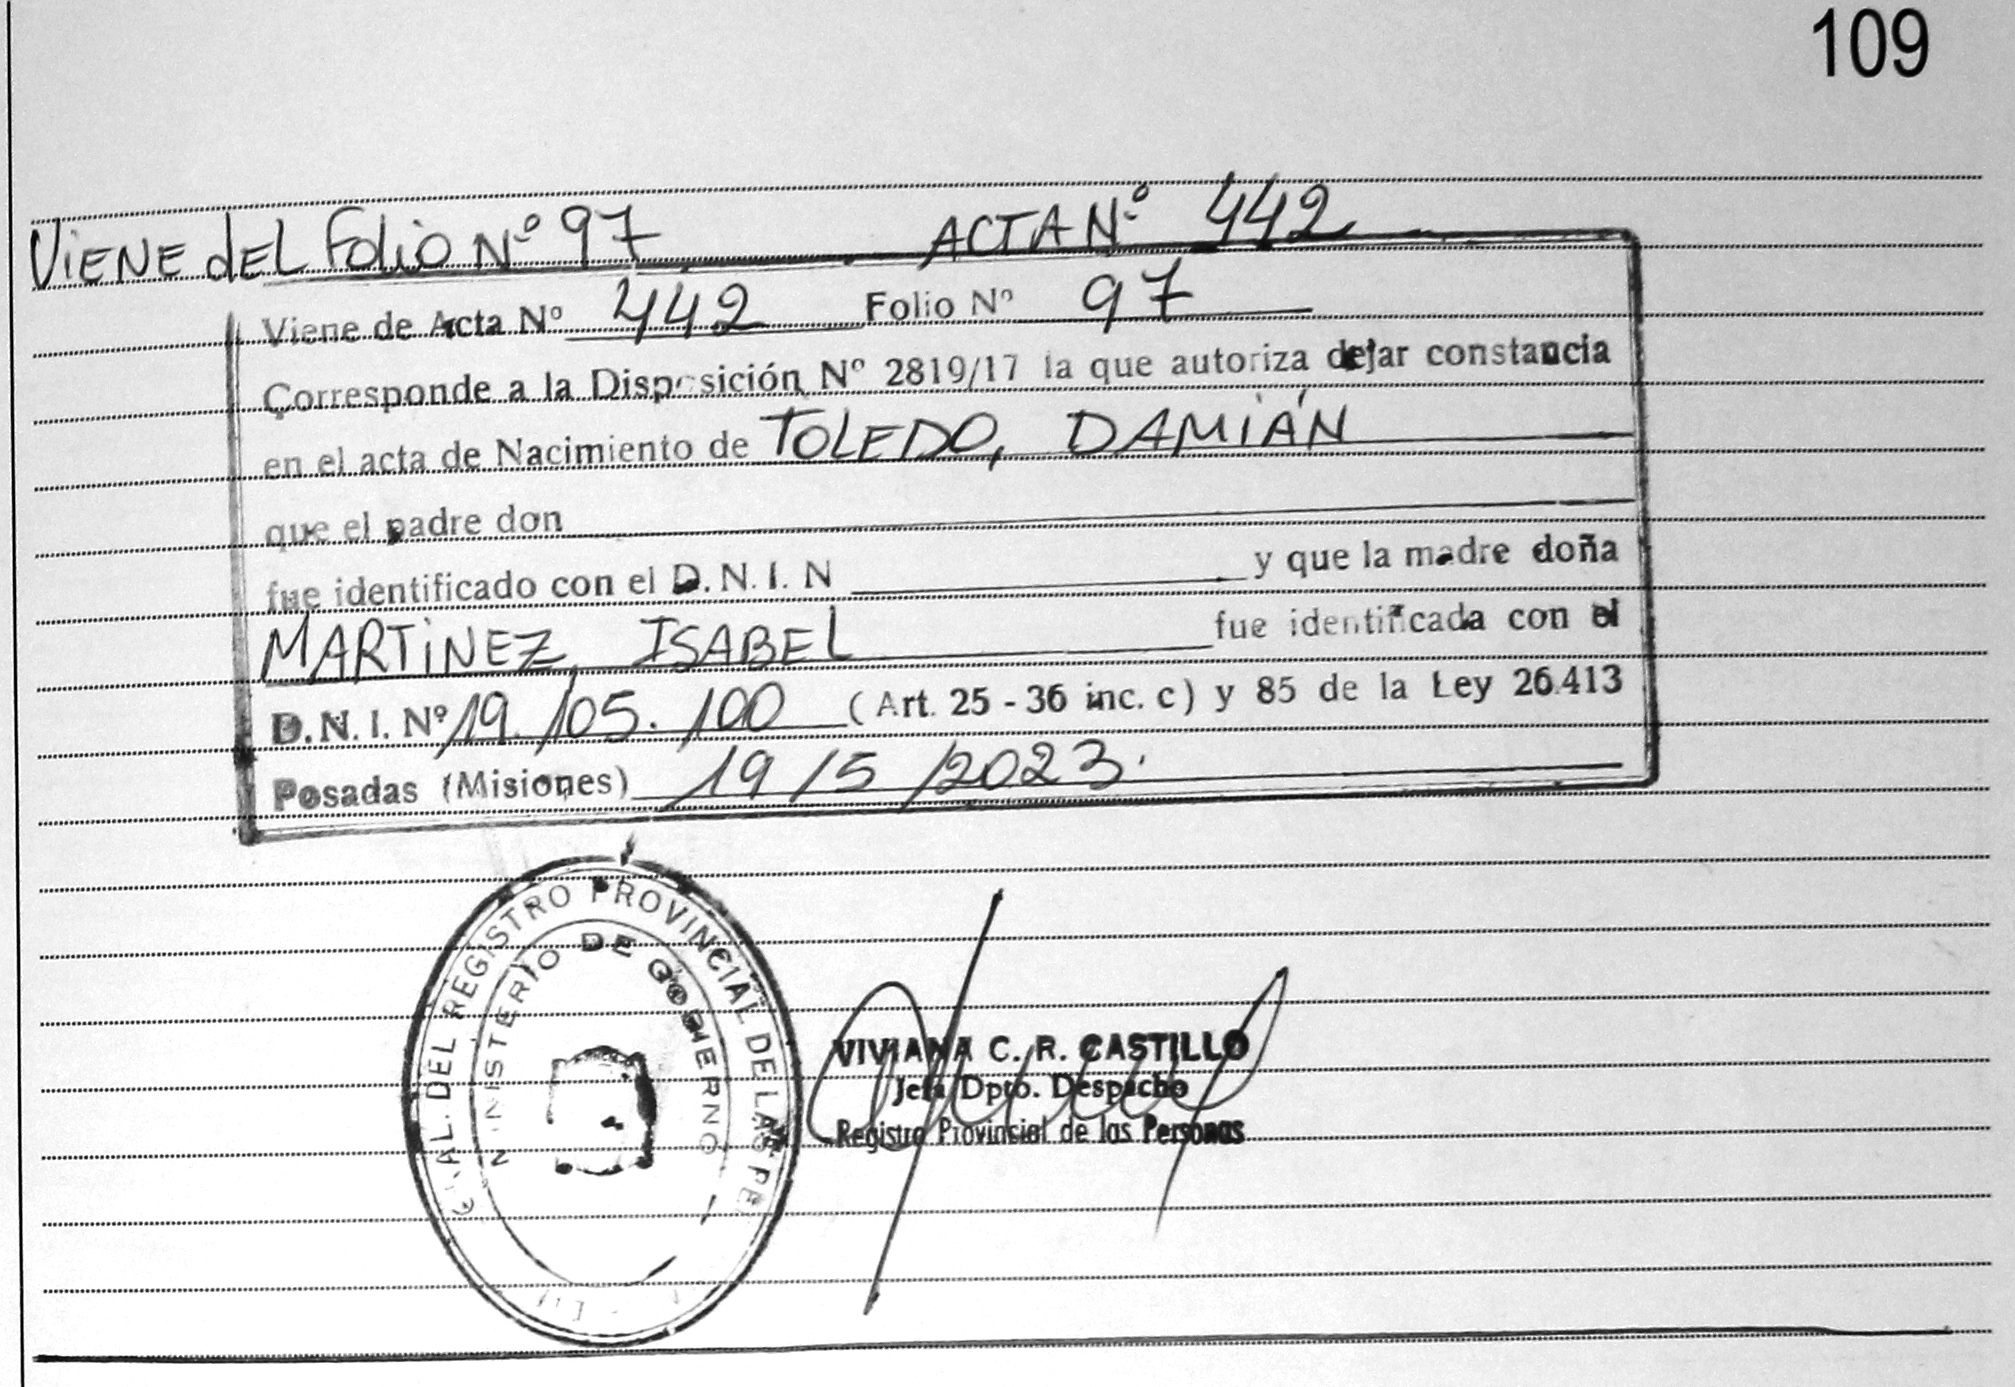 109
ViENE dEL Folio Nº 97 ACTA Nº 442
Viene de Acta Nº 442 Folio Nº 97
Corresponde a la Disposición Nº 2819/17 la que autoriza dejar constancia
en el acta de Nacimiento de TOLEDO, DAMiÁN
que el padre don
fue identificado con el D.N.I. N y que la madre doña
MARTiNEZ, ISABEL fue identificada con el
D.N.I. Nº 19.105.100 (Art. 25 - 36 inc. c) y 85 de la Ley 26.413
Posadas (Misiones) 19/5/2023.
GRAL. DEL REGISTRO PROVINCIAL DE LAS PE
MINISTERIO DE GOBIERNO
VIVIANA C. R. CASTILLO
Jefa Dpto. Despacho
Registro Provincial de las Personas